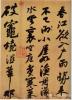 春江欲入戶雨勢來
不已雨小屋如漁舟濛
濛水雲裏空庖煮寒菜
破竈燒濕葦那